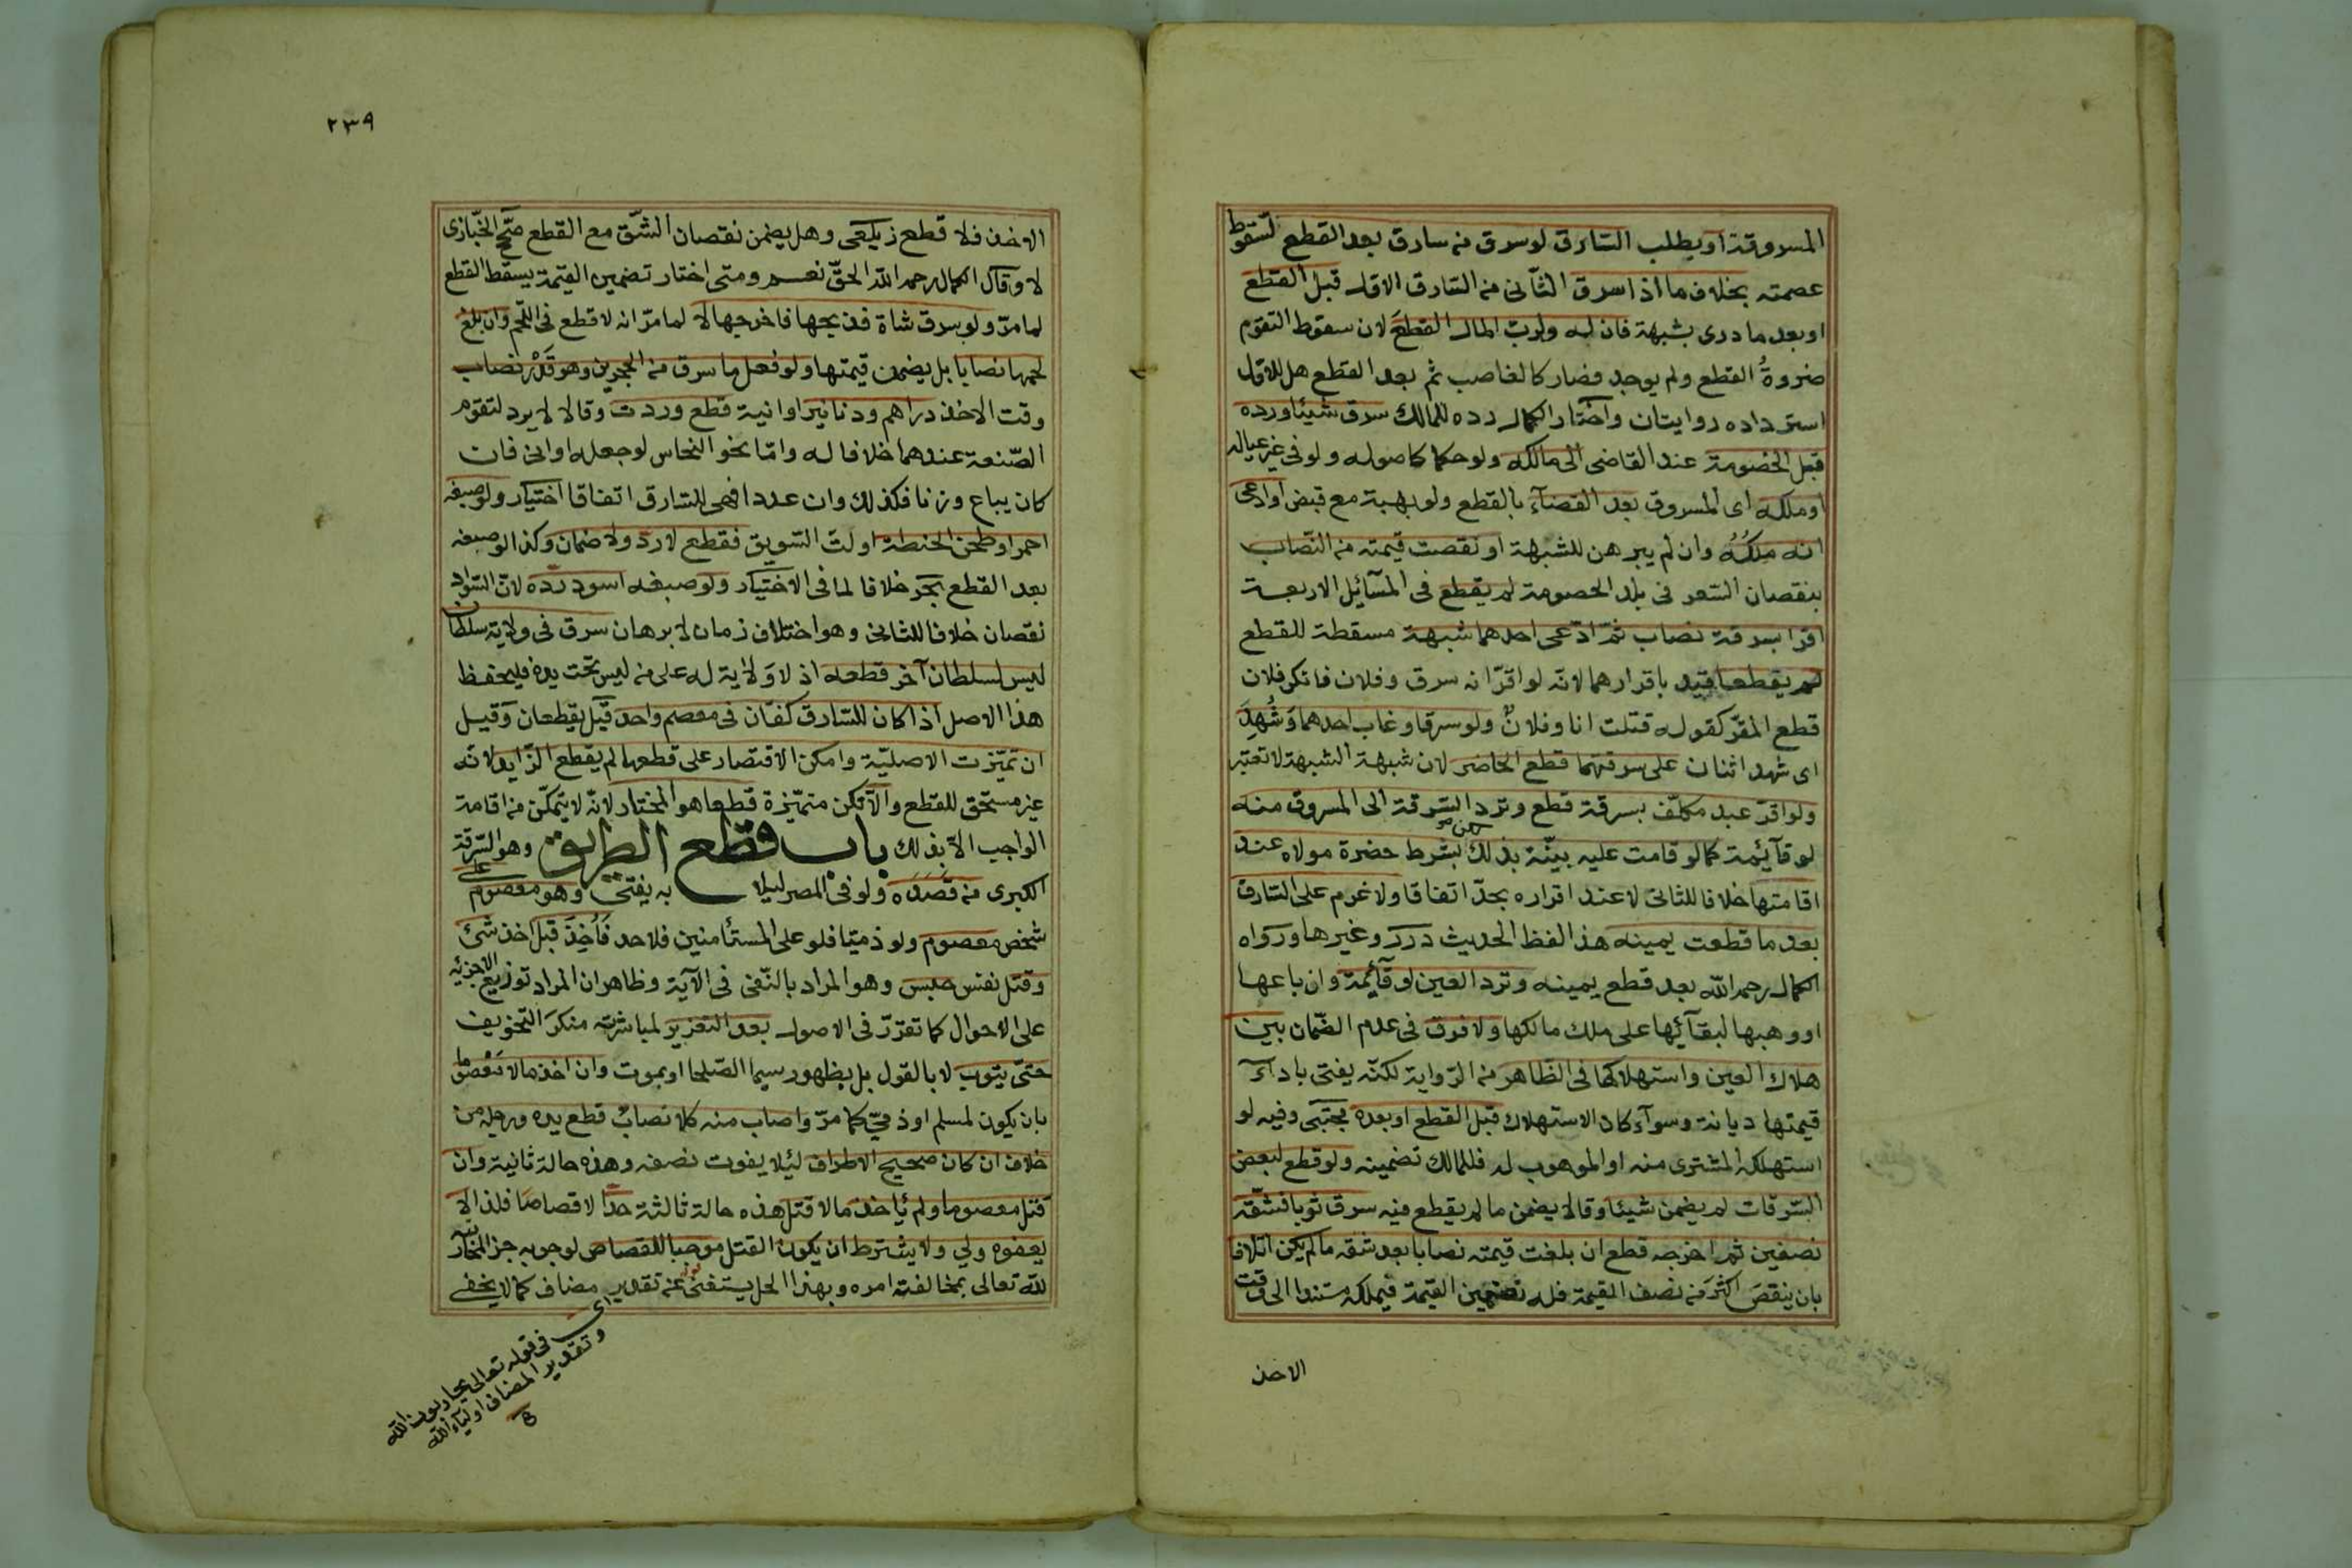 المسروقة او يطلب السّارق لو سرق من سارق بعد القطع لسقوط
عصمته بخلاف ما اذا سرق الثّانى من السّارق الاول قبل القطع
او بعد ما درى بشبهة فان له ولربّ المال القطعَ لان سقوط التقوم
ضروةُ القطع ولم يوجد فصار كالغاصب ثم بعد القطع هل للاول
استرداده روايتان واختار الكمال رده للمالك سرق شيئا ورده
قبل الخصومة عند القاضى الى مالكه ولو حكما كاصوله ولو فى غير عياله
او ملكه اى المسروق بعد القضآء بالقطع ولو بهبة مع قبض او ادعى
انه ملكُهُ وان لم يبرهن للشبهة او نقصت قيمته من النّصاب
بنقصان السّعر فى بلد الخصومة لم يقطع فى المسآئل الاربعة
اقرا بسرقة نصاب ثمّ ادّعى احدهما شبهة مسقطة للقطع
لم يقطعا قيد باقرارهما لانّه لو اقرّ انه سرق وفلان فانكر فلان
قطع المقرّ كقوله قتلت انا وفلانٌ ولو سرقا وغاب احدهما وَشُهِدَ
اى شهد اثنان على سرقتهما قطع الحاضر لان شبهة الشبهة لا تعتبر
ولو اقرّ عبد مكلّف بسرقة قطع وترد السّرقة الى المسروق منه
لو قآئمة كما لو قامت عليه بيّنة بذلك بشرط حضرة مولاه عند
اقامتها خلافا للثانى لا عند اقراره بحدّ اتفاقا ولا غرم على السّارق
بعد ما قطعت يمينه هذا لفظ الحديث درر وغيرها ورواه
الكمال رحمه الله بعد قطع يمينه وترد العين لو قآئمة وان باعها
او وهبها لبقآئها على ملك مالكها ولا فرق فى عدم الضّمان بين
هلاك العين واستهلاكها فى الظّاهر من الرّواية لكنّه يفتى باداء
قيمتها ديانة وسوآء كان الاستهلاك قبل القطع او بعده مجتبى وفيه لو
استهلكه المشترى منه او الموهوب له فللمالك تضمينه ولو قطع لبعض
السّرقات لم يضمن شيئا وقالا يضمن ما لم يقطع فيه سرق ثوبا فشقّه
نصفين ثم اخرجه قطع ان بلغت قيمته نصابا بعد شقه ما لم يكن اتلافا
بان ينقص اكثرَ من نصف القيمة فله تضمين القيمة فيملكه مستندا الى وقت
الاخذ
٢٣٩
الاخذ فلا قطع زيلعى وهل يضمن نقصان الشّق مع القطع صحّح الخبّازى
لا وقال الكمال رحمه الله الحقّ نعم ومتى اختار تضمين القيمة يسقط القطع
لما مرّ ولو سرق شاة فذبحها فاخرجها لا لما مرّ انه لا قطع فى اللّحم وان بلغ
لحمها نصابا بل يضمن قيمتها ولو فعل ما سرق من الحجرين وهو قَدْر نصاب
وقت الاخذ دراهم ودنانير او انية قطع وردت وقالا لا يرد لتقوم
الصّنعة عندهما خلافا له وامّا نحو النحاس لو جعله اوانى فان
كان يباع وزنا فكذلك وان عددا فهى للسّارق اتفاقا اختيار ولو صبغه
احمر او طحن الحنطة او لتّ السّويق فقطع لا ردّ ولا ضمان وكذا لو صبغه
بعد القطع بحر خلافا لما فى الاختيار ولو صبغه اسود ردّه لانّ السّواد
نقصان خلافا للثانى وهو اختلاف زمان لا برهان سرق فى ولاية سلطان
ليس لسلطان آخر قطعه اذ لا وَلاية له على من ليس تحت يده فليحفظ
هذا الاصل اذا كان للسّارق كفّان فى معصم واحد قيل يقطعان وقيل
ان تميّزت الاصليّة وامكن الاقتصار على قطعها لم يقطع الزّايد لانّه
غير مستحق للقطع والّا تكن متميّزة قطعا هو المختار لانّه لا يتمكّن من اقامة
الواجب الّا بذلك باب قطع الطريق وهو السّرقة
الكبرى من قَصَدَه ولو فى المصر ليلا به يفتى وهو معصوم على
شخص معصوم ولو ذميّا فلو على المستأمنين فلا حد فَاُخِذَ قبل اخذ شئ
وقتل نفس حبس وهو المراد بالنّفى فى الآية وظاهر ان المراد توزيع الاجزئه
على الاحوال كما تقرّر فى الاصول بعد التعزير لمباشرته منكر التخويف
حتّى يتوب لا بالقول بل بظهور سيما الصّلحا او بموت وان اخذ مالا مَعْصُوما
بان يكون لمسلم او ذمىّ كما مرّ واصاب منه كلا نصابٌ قطع يده ورجله من
خلاف ان كان صحيح الاطراف لئلا يفوت نصفه وهذه حالة ثانية وان
قتل معصوما ولم يأخذ مالا قتل هذه حالة ثالثة حدّا لا قصاصا فلذا لا
يعفوه ولي ولا يشترط ان يكون القتل موجبا للقصاص لوجوبه جزا لمحاربته
لله تعالى بمخالفته امره وبهذا الحل يستغنى عن تقدير مضاف كما لا يخفى
اى فى قوله تعالى يحاربون الله
وتقدير المضاف اوليآء الله